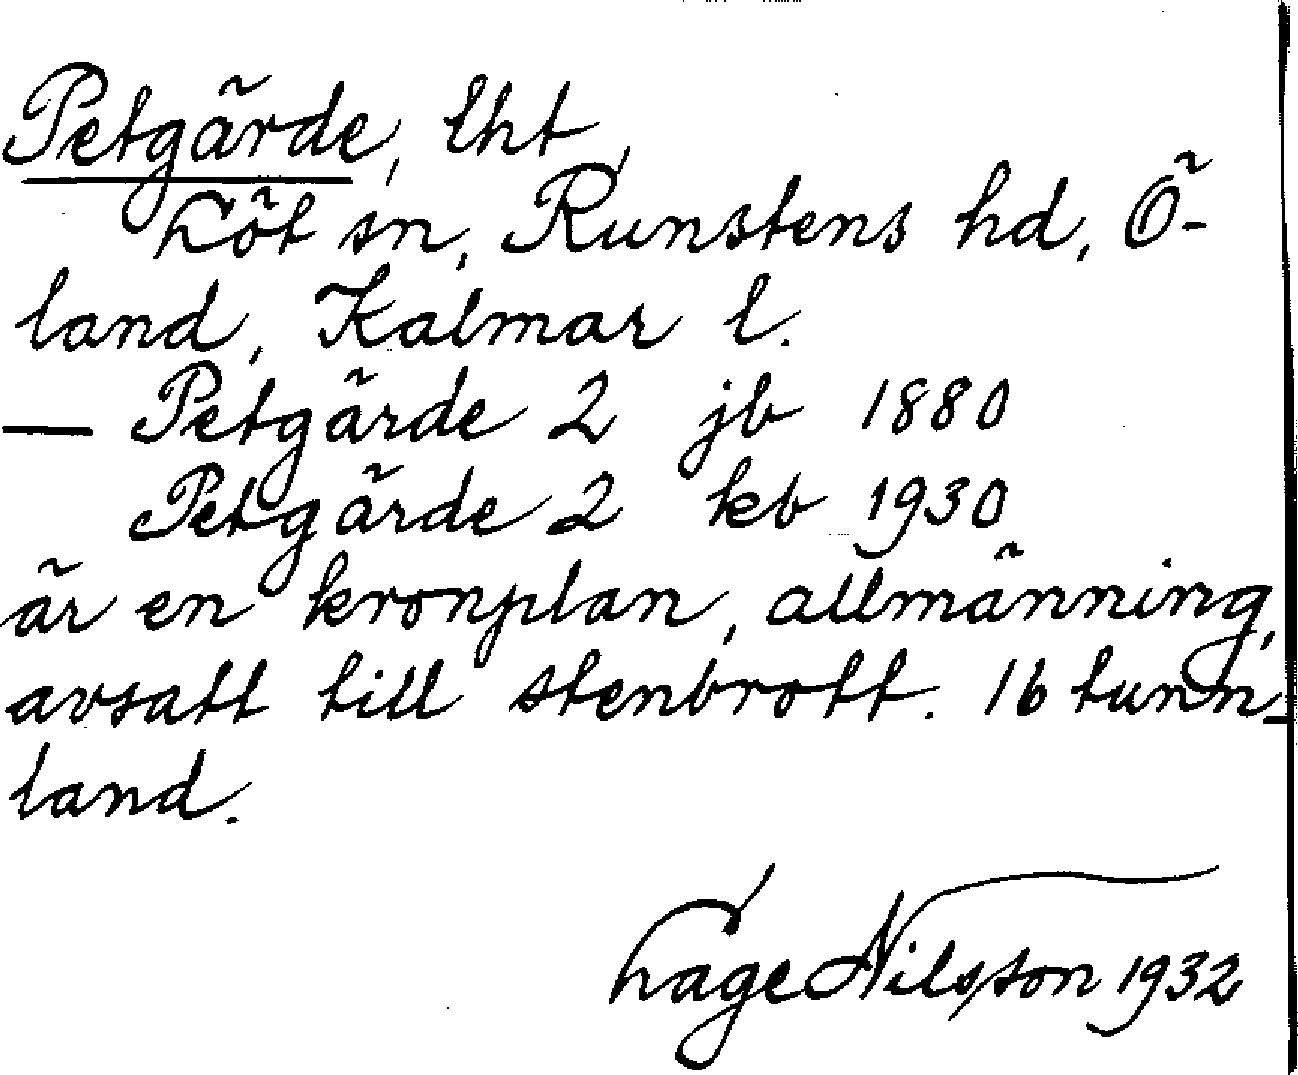 Petgärde, lht
Löt sn, Runstens hd, Ö-
land, Kalmar l.
— Petgärde 2 jb 1880
Petgärde 2 kb 1930
är en kronplan, allmänning,
avsatt till stenbrott. 16 tunn-
land.
Lage Nilsson 1932